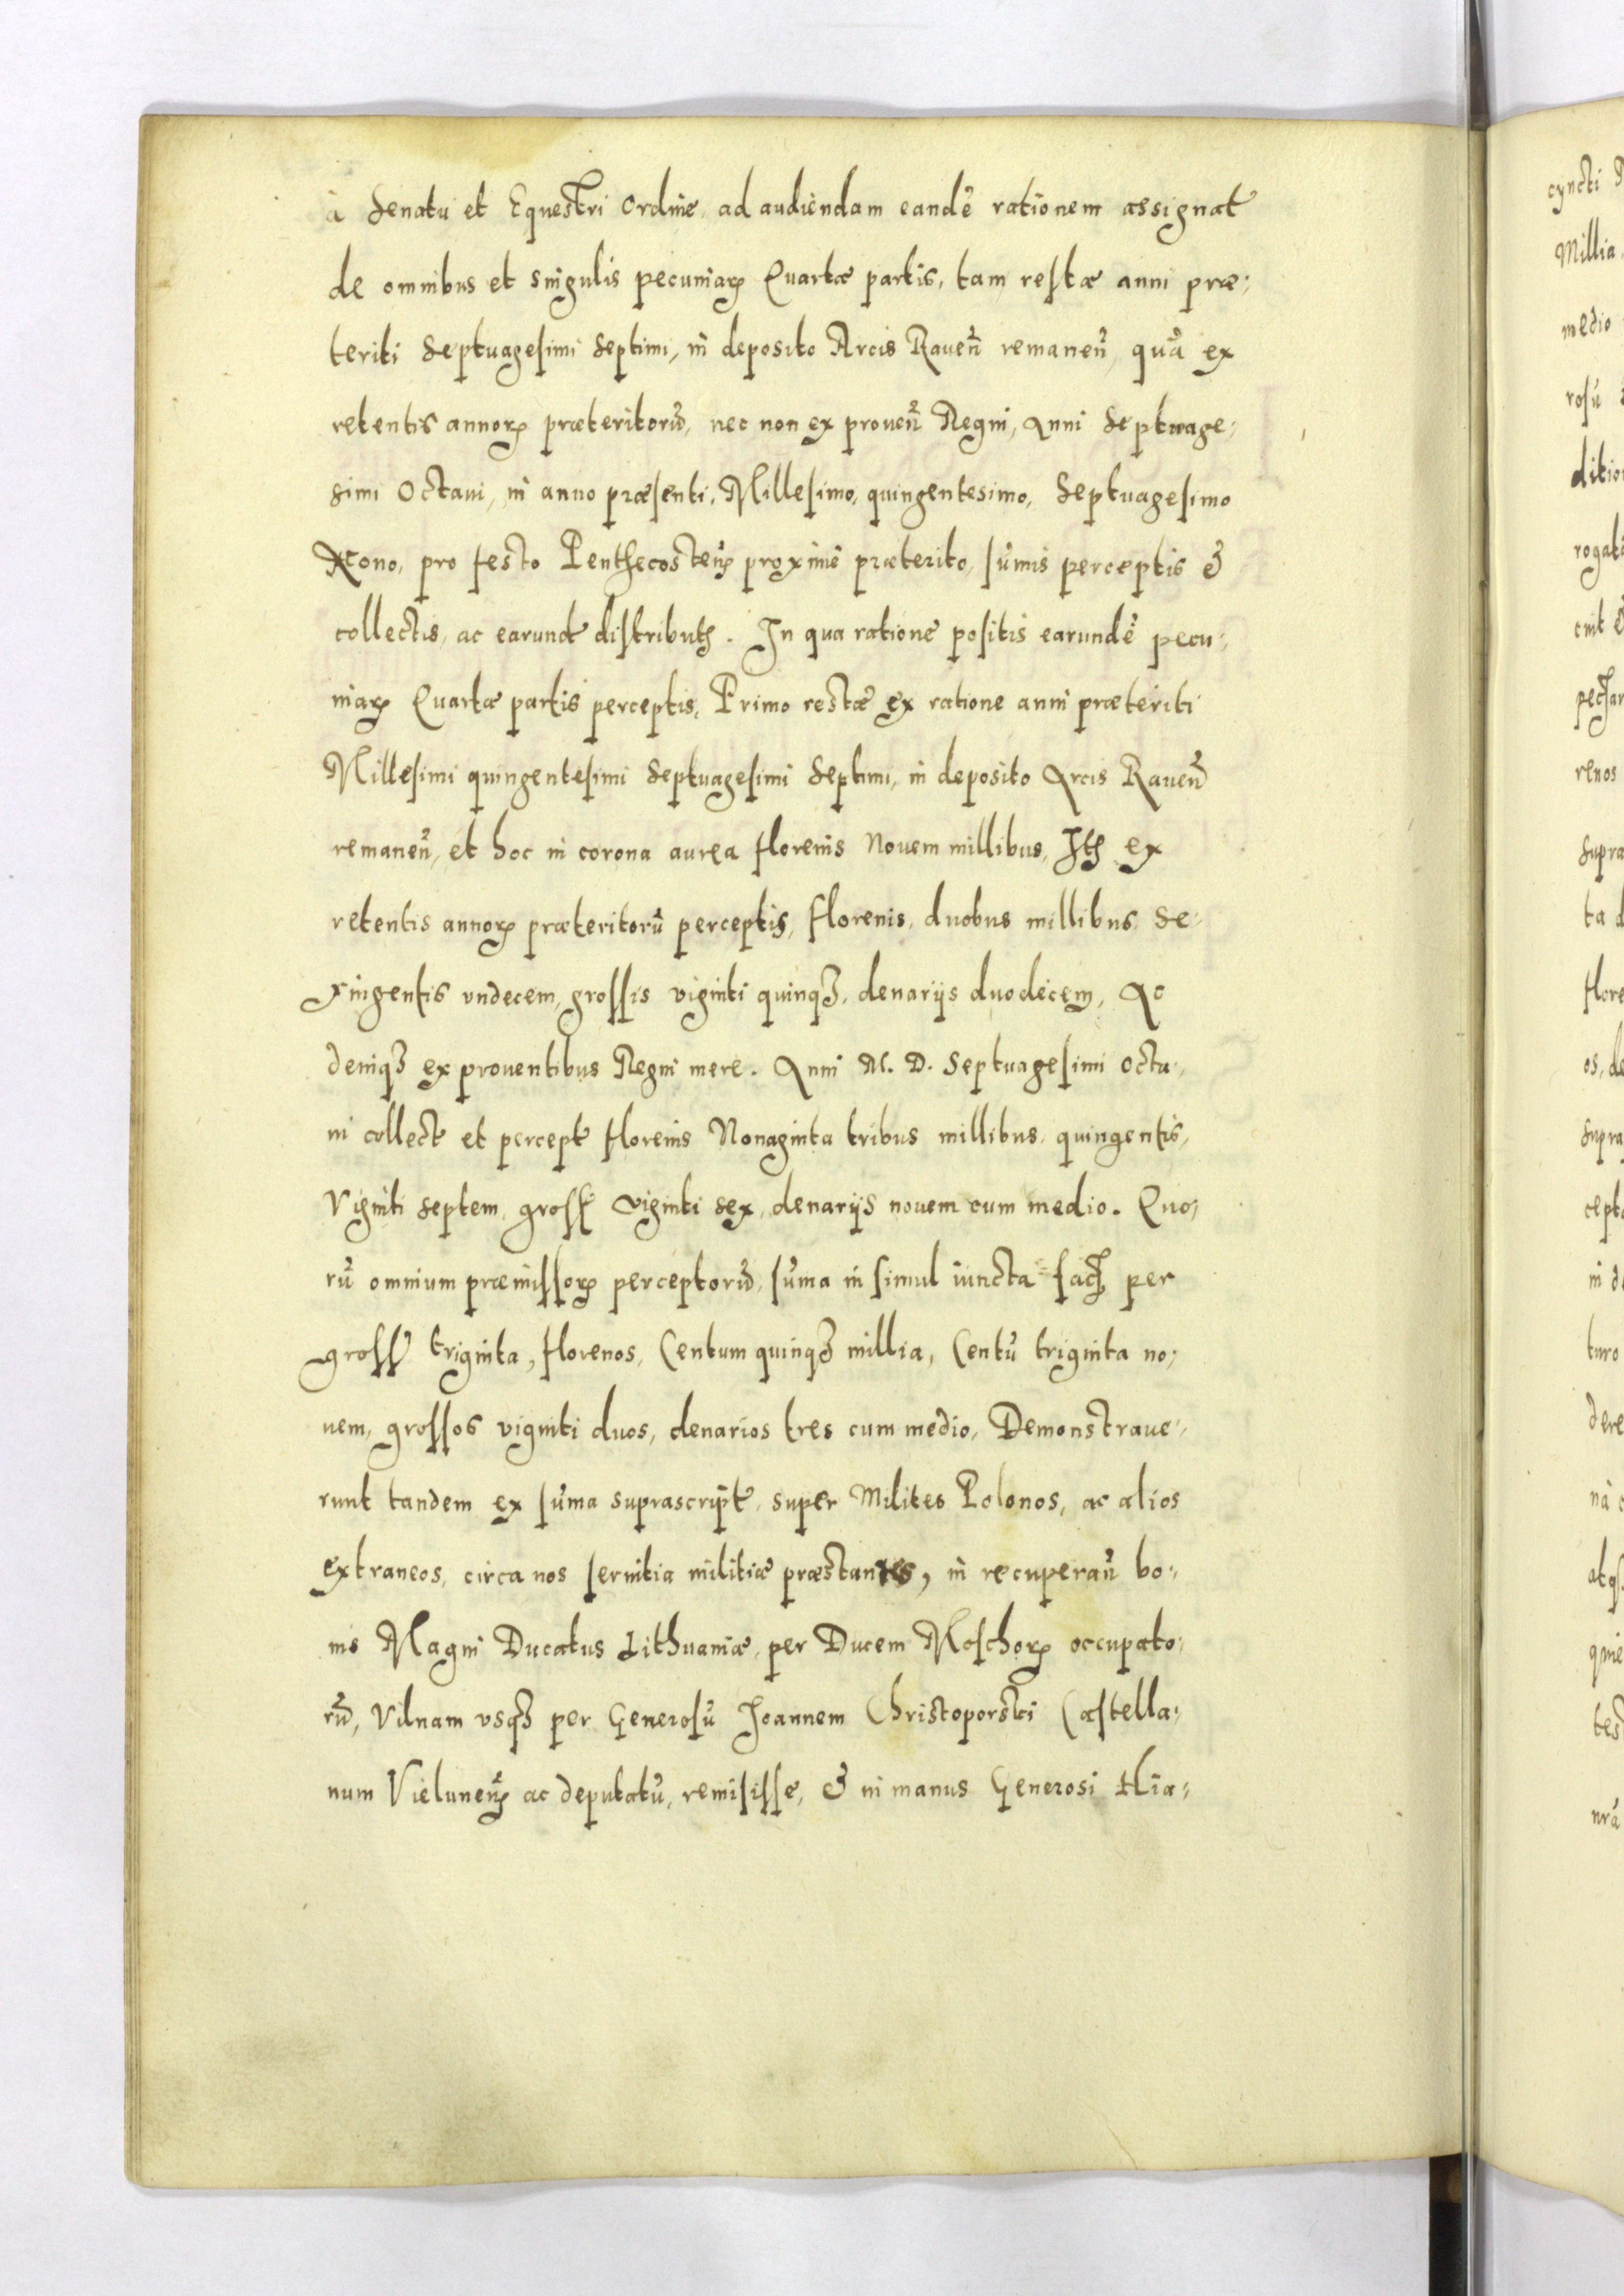 à Senatu et Equestri Ordine, ad audiendam eandẽ rationem assignat
de omnibus et singulis pecuniaꝝ Quartæ partis, tam restæ anni præ:
teriti Septuagesimi Septimi, in deposito Arcis Rauen̄ remanen̄, quã ex
retentis annoꝝ præteritorũ, nec non ex prouen̄ Regni, Anni Septuage:
simi Octaui, in anno præsenti, Millesimo, quingentesimo, Septuagesimo
Nono, pro festo Penthecosteꝝ proximè præterito, sũmis perceptis &
collectis, ac earund distribut. In qua ratione positis earundẽ pecu:
niaꝝ Quartæ partis perceptis, Primo restæ ex ratione anni præteriti
Millesimi quingentesimi Septuagesimi Septimi, in deposito Arcis Rauen̄
remanen̄, et hoc in corona aurea florenis Nouem millibus, It ex
retentis annoꝝ præteritorũ perceptis, florenis, duobus millibus, Se:
xingentis vndecem, grossis viginti quinqꝫ, denarijs duodecem, Ac
deniqꝫ ex prouentibus Regni mere. Anni M. D. Septuagesimi octa:
ui collect et percept florenis Nonaginta tribus millibus, quingentis,
Viginti Septem, gross viginti sex, denarijs nouem cum medio. Quo:
rũ omnium præmissoꝝ perceptorũ, sũma in simul iuncta fac per
gross triginta, florenos, Centum quinqꝫ millia, Centũ triginta no:
uem, grossos viginti duos, denarios tres cum medio, Demonstraue:
runt tandem ex sũma suprascript, super Milites Polonos, ac alios
extraneos, circa nos seruitia militiæ præstantes, in recuperan̄ bo:
nis Magni Ducatus Lithuaniæ, per Ducem Moschoꝝ occupato:
rũ, Vilnam vsqꝫ per Generosũ Joannem Christoporski Castella:
num Vieluneñ ac deputatũ, remisisse, & in manus Generosi Hia: